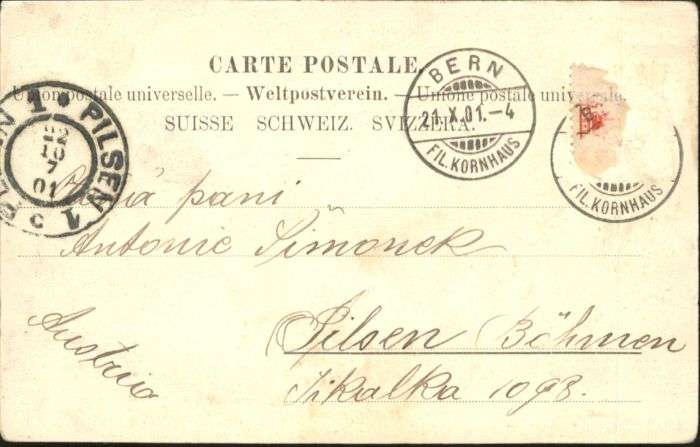 CARTE POSTALE.
Union postale universelle. — Weltpostverein. — Unione postale universale.
SUISSE SCHWEIZ. SVIZZERA.
BERN
21.X.01.–4
FIL. KORNHAUS
FIL. KORNHAUS
PILSEN 1
22
10
7
01
PLZEŇ 1
pani
Antonie Šimonek
Pilsen Böhmen
Austria
1098.